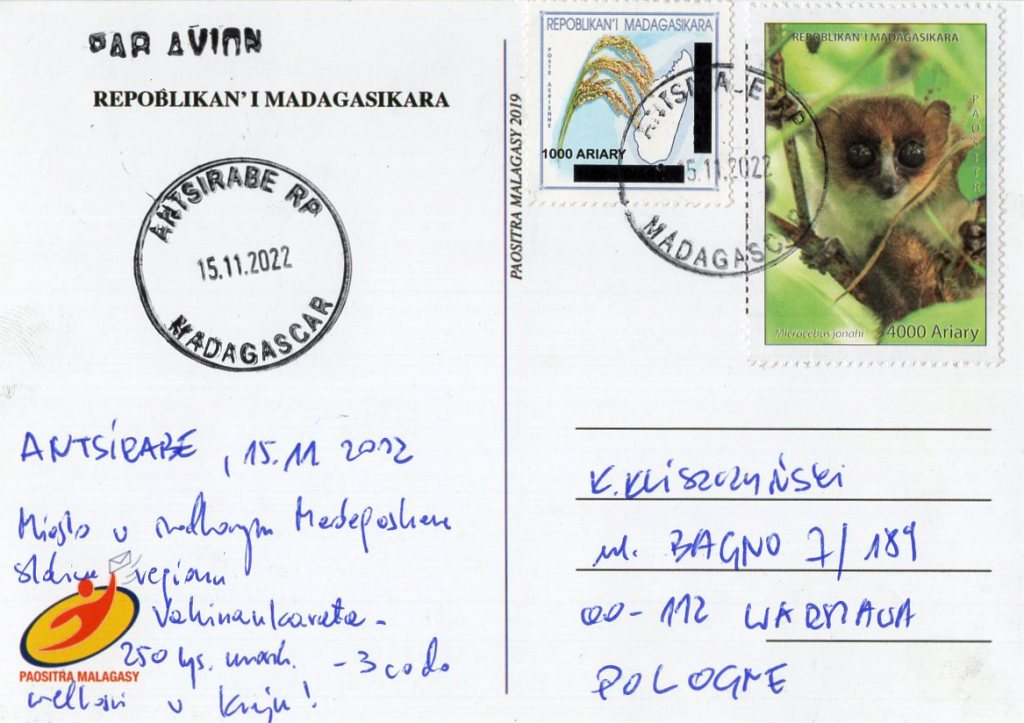 PAR AVION
REPOBLIKAN' I MADAGASIKARA
ANTSIRABE RP
15.11.2022
MADAGASCAR
ANTSIRABE, 15.11 2022
Miasto w środkowym Madagaskarze
stolica regionu
Vakinankaratra -
250 tys. mieszk. - 3 co do
wielkości w kraju!
PAOSITRA MALAGASY
PAOSITRA MALAGASY 2019
REPOBLIKAN'I MADAGASIKARA
POSTE AERIENNE
1000 ARIARY
ANTSIRA
15.11.2022
MADAGASCAR
REPOBLIKAN'I MADAGASIKARA
PAOSITR
Microcebus jonahi
4000 Ariary
K. KLISZCZYŃSKI
ul. BAGNO 7/189
00-112 WARSZAWA
POLOGNE